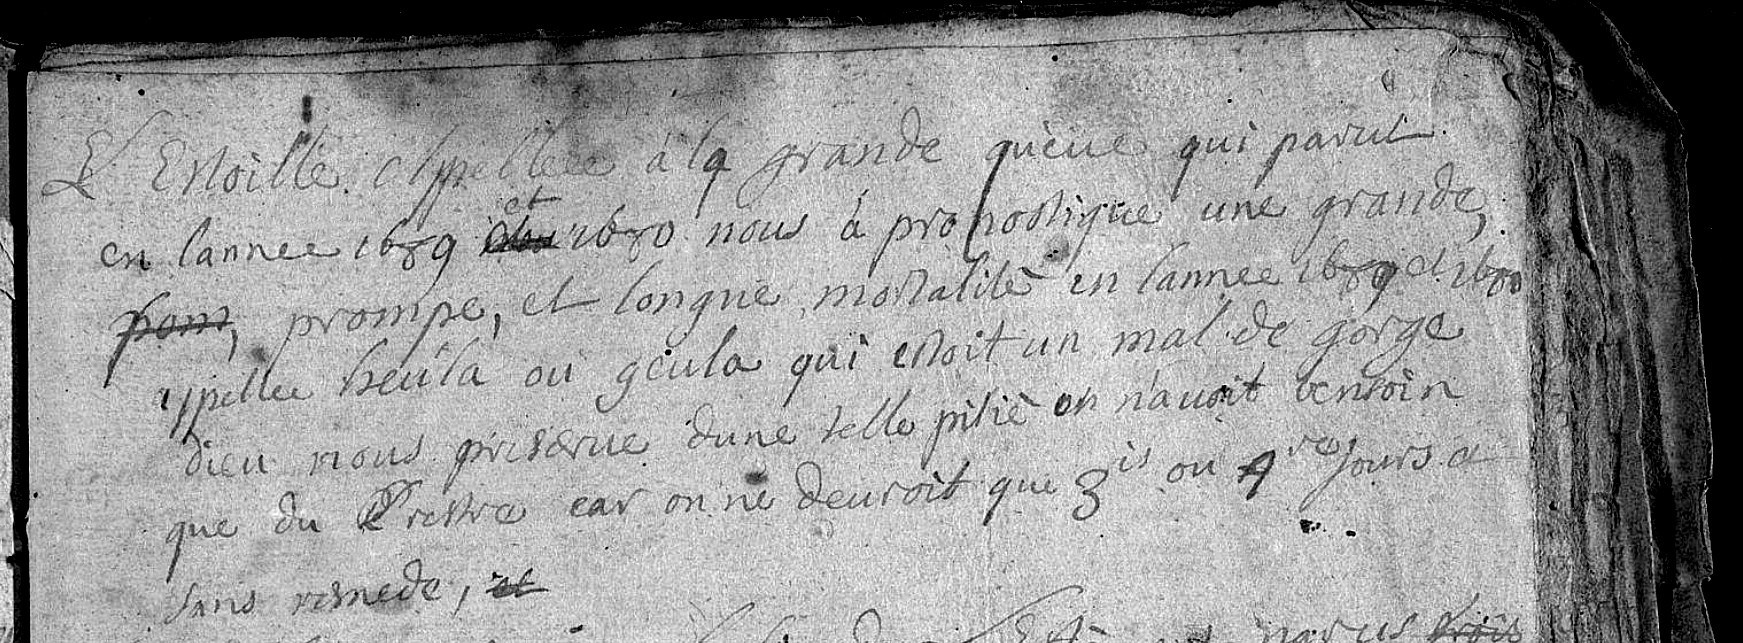 L Estoille Appellee a la grande queue qui parut
en lannee 1689 et 1680 nous à pronostique une grande,
prompe, et longue mortalitè en lannee 1689 et 1680
appellee heula ou geula qui estoit un mal de gorge
dieu nous preserue dune telle pitiè on n'auoit bensoin
que du Prestre car on ne deuroit que 3is ou 4re Jours et
sans remede, et